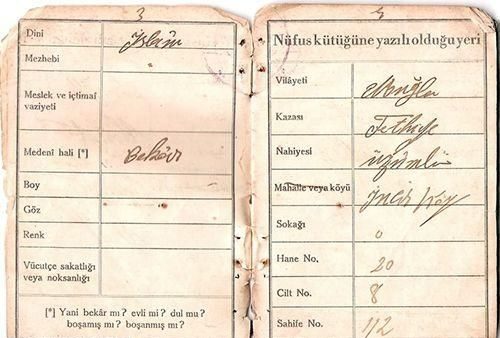 3
Dini İslâm
Mezhebi
Meslek ve içtimaî
vaziyeti
Medenî hali [*] Bekâr
Boy
Göz
Renk
Vücutçe sakatlığı
veya noksanlığı
[*] Yani bekâr mı? evli mi? dul mu?
boşamış mı? boşanmış mı?
Nüfus kütüğüne yazılı olduğu yeri
Vilâyeti Muğla
Kazası Fethiye
Nahiyesi Üzümlü
Mahalle veya köyü İncir köy
Sokağı 0
Hane No. 20
Cilt No. 8
Sahife No. 112